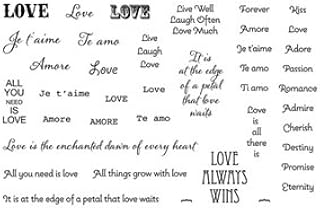 LOVE
Love
LOVE
Je t'aime
Te amo
Amore
Love
ALL
YOU
NEED
IS
LOVE
Je t'aime
LOVE
LOVE
Amore
AMORE
Te amo
Live
Laugh
Love
Live Well
Laugh Often
Love Much
It is
at the edge
of a petal
that love
waits
Forever
Amore
Je t'aime
Te amo
Ti amo
Love
is
all
there
is
Kiss
Love
Adore
Passion
Romance
Admire
Cherish
Destiny
Promise
Eternity
Love is the enchanted dawn of every heart
All you need is love
All things grow with love
It is at the edge of a petal that love waits
LOVE
ALWAYS
WINS